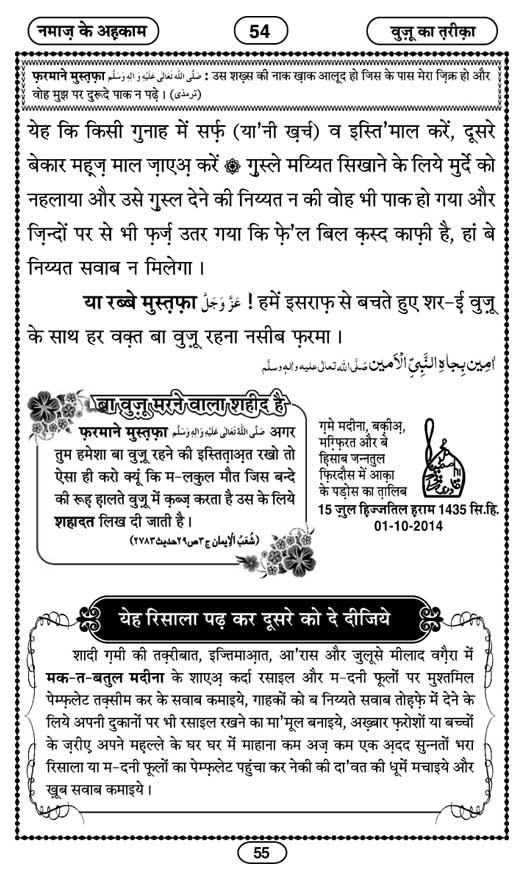 नमाज़ के अहकाम
54
वुज़ू का तरीक़ा
फ़रमाने मुस्तफ़ा صَلَّى اللهُ تَعَالٰى عَلَيْهِ وَاٰلِهٖ وَسَلَّم : उस शख़्स की नाक ख़ाक आलूद हो जिस के पास मेरा ज़िक्र हो और
वोह मुझ पर दुरूदे पाक न पढ़े । (ترمذی)
येह कि किसी गुनाह में सर्फ़ (या'नी ख़र्च) व इस्ति'माल करें, दूसरे
बेकार महूज़ माल ज़ाएअ़ करें ❁ ग़ुस्ले मय्यित सिखाने के लिये मुर्दे को
नहलाया और उसे ग़ुस्ल देने की निय्यत न की वोह भी पाक हो गया और
ज़िन्दों पर से भी फ़र्ज़ उतर गया कि फ़े'ल बिल क़स्द काफ़ी है, हां बे
निय्यत सवाब न मिलेगा ।
या रब्बे मुस्तफ़ा عَزَّوَجَلَّ ! हमें इसराफ़ से बचते हुए शर-ई वुज़ू
के साथ हर वक़्त बा वुज़ू रहना नसीब फ़रमा ।
اٰمِين بِجَاهِ النَّبِيِّ الْاَمين صَلَّى اللهُ تعالٰى عليه واٰلهٖ وسلَّم
बा वुज़ू मरने वाला शहीद है
फ़रमाने मुस्तफ़ा صَلَّى اللهُ تَعَالٰى عَلَيْهِ وَاٰلِهٖ وَسَلَّم अगर
तुम हमेशा बा वुज़ू रहने की इस्तिताअ़त रखो तो
ऐसा ही करो क्यूं कि म-लकुल मौत जिस बन्दे
की रूह हालते वुज़ू में क़ब्ज़ करता है उस के लिये
शहादत लिख दी जाती है ।
(شُعَبُ الْاِيمان ج٣ص٢٩حديث٢٧٨٣)
ग़मे मदीना, बक़ीअ़,
मग़्फ़िरत और बे
हिसाब जन्नतुल
फ़िरदौस में आक़ा
के पड़ोस का तालिब
15 ज़ुल हिज्जतिल हराम 1435 सि.हि.
01-10-2014
येह रिसाला पढ़ कर दूसरे को दे दीजिये
शादी ग़मी की तक़रीबात, इज्तिमाआ़त, आ'रास और जुलूसे मीलाद वग़ैरा में
मक-त-बतुल मदीना के शाएअ़ कर्दा रसाइल और म-दनी फूलों पर मुश्तमिल
पेम्फ़लेट तक़्सीम कर के सवाब कमाइये, गाहकों को ब निय्यते सवाब तोहफ़े में देने के
लिये अपनी दुकानों पर भी रसाइल रखने का मा'मूल बनाइये, अख़्बार फ़रोशों या बच्चों
के ज़रीए अपने महल्ले के घर घर में माहाना कम अज़ कम एक अ़दद सुन्नतों भरा
रिसाला या म-दनी फूलों का पेम्फ़लेट पहुंचा कर नेकी की दा'वत की धूमें मचाइये और
ख़ूब सवाब कमाइये ।
55